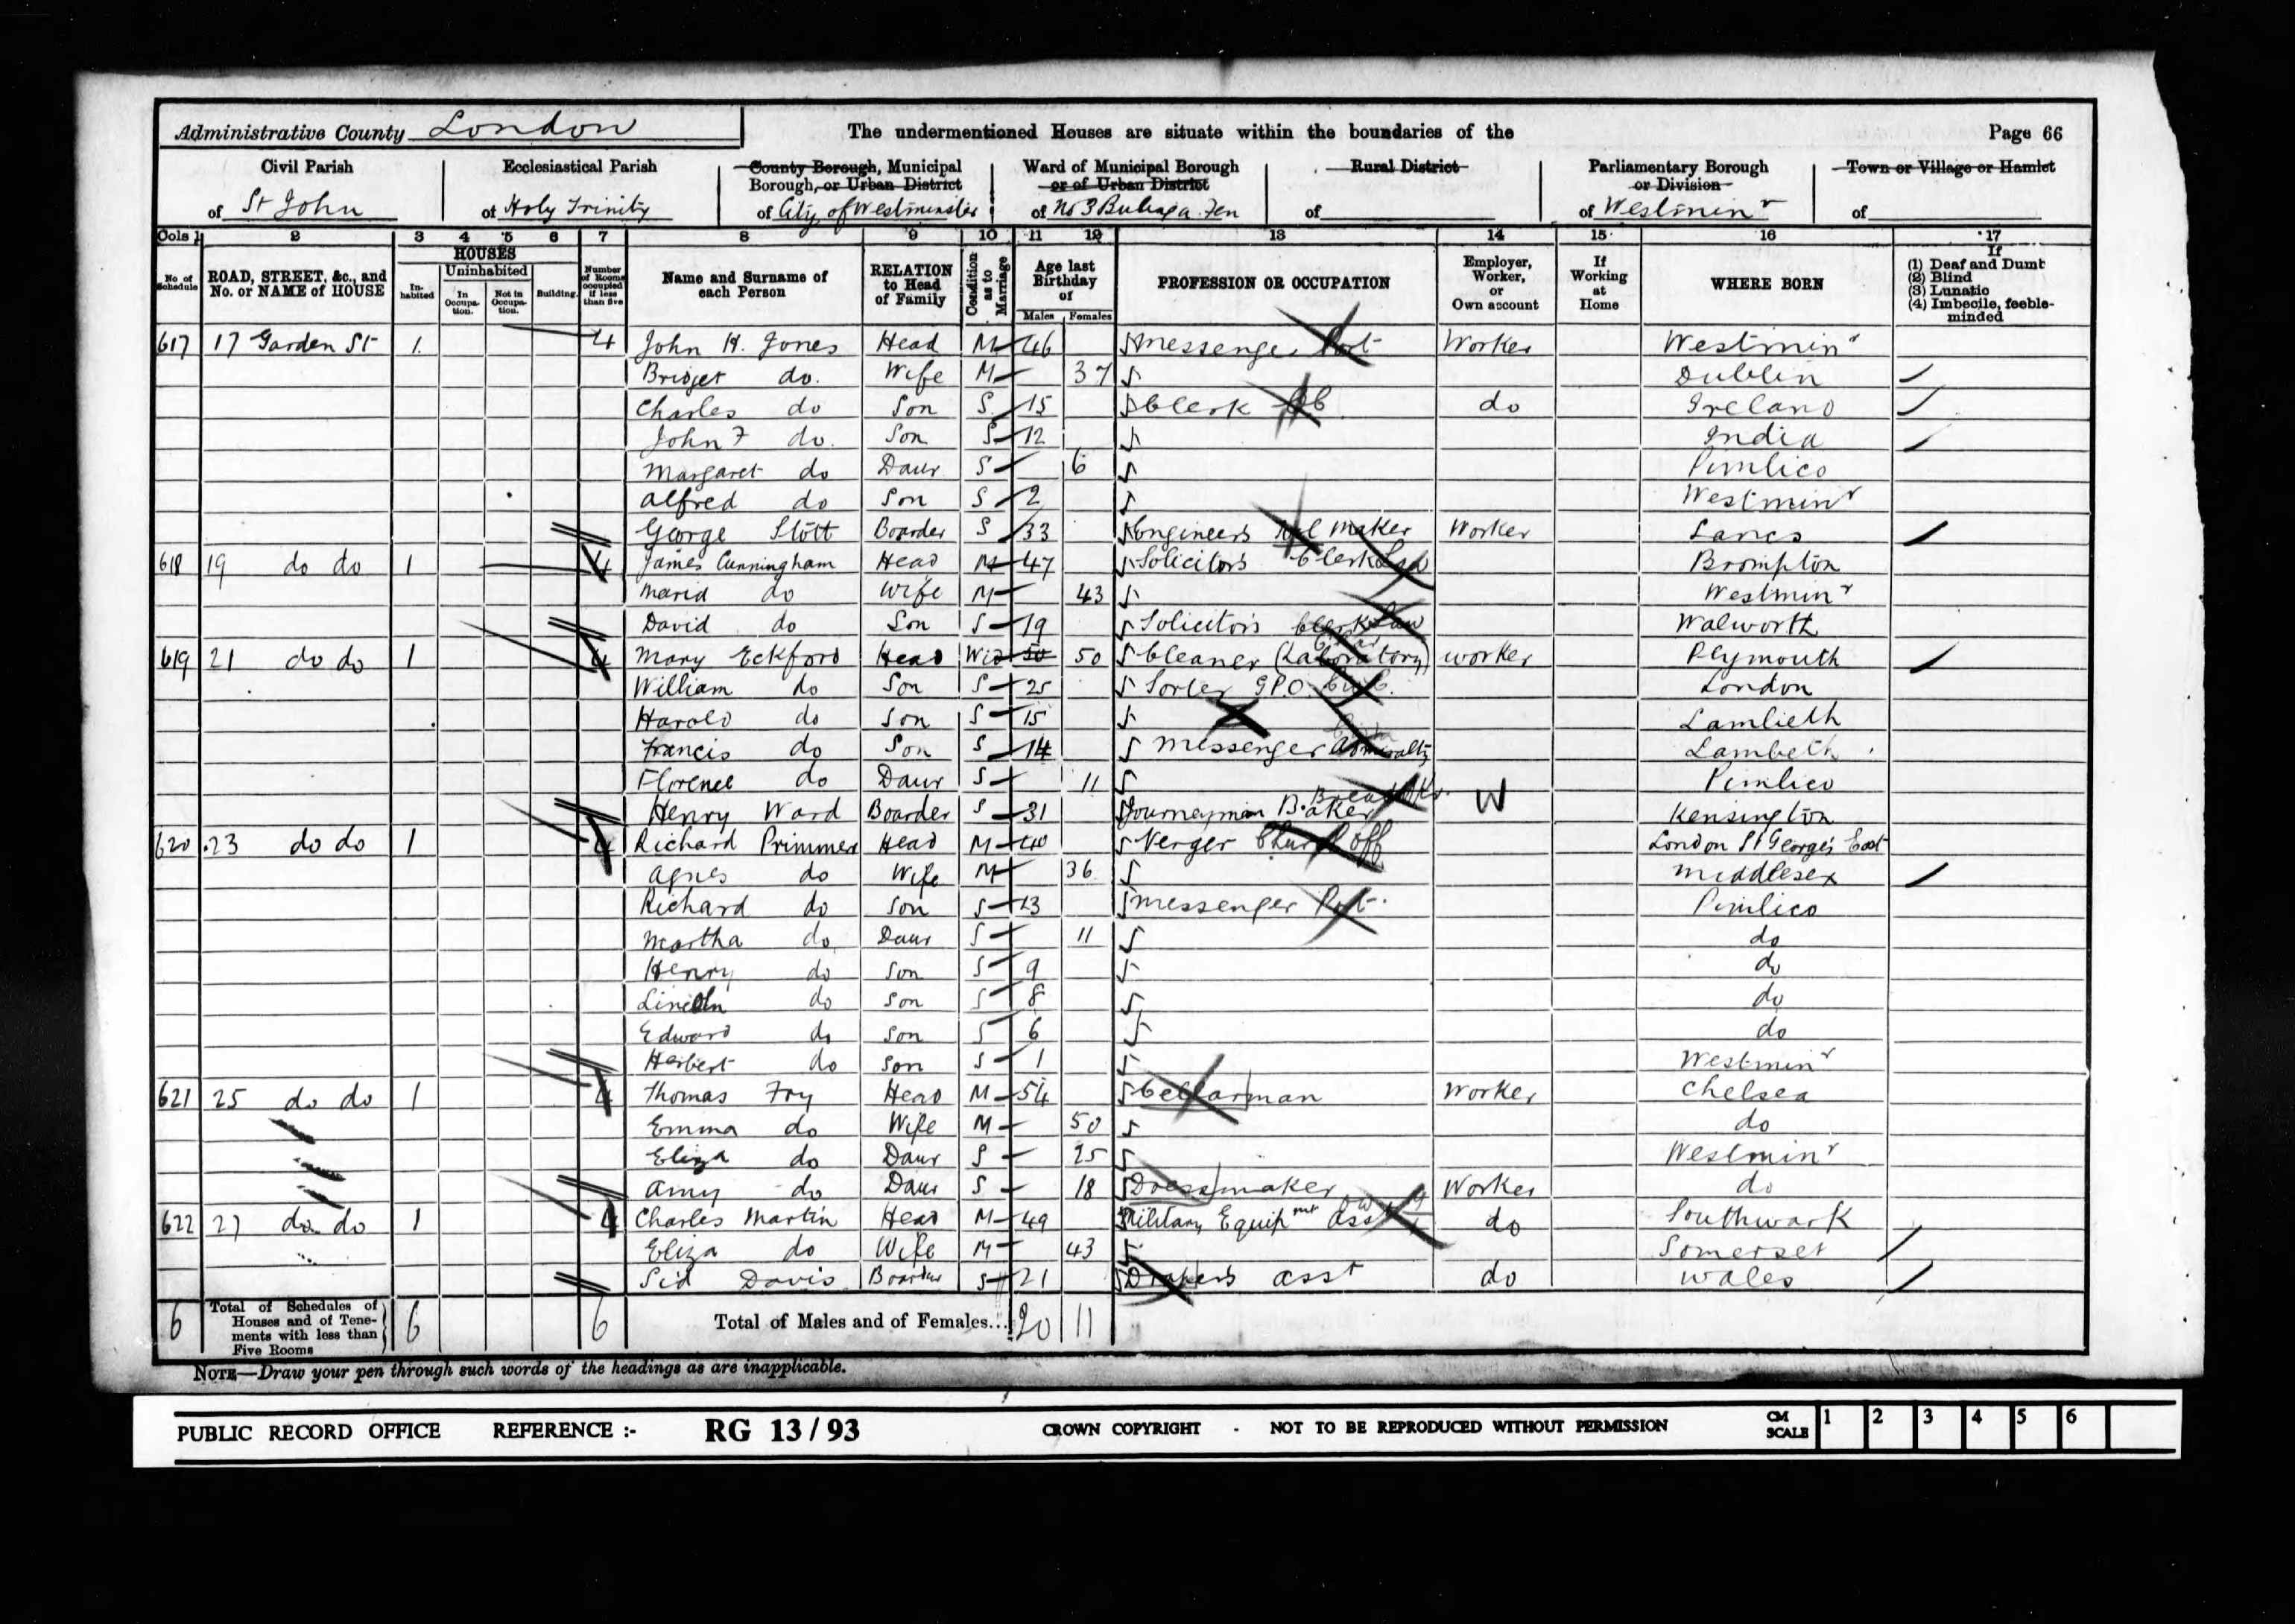 Administrative County London The undermentioned Houses are situate within the boundaries of the Page 66
Civil Parish Ecclesiastical Parish County Borough, Municipal Borough, or Urban District Ward of Municipal Borough or of Urban District Rural District Parliamentary Borough or Division Town or Village or Hamlet
of St John of Holy Trinity of City of Westminster of No 3 of of Westminr of
Cols 1 2 3 4 5 6 7 8 9 10 11 12 13 14 15 16 17
No of Schedule ROAD, STREET, &c., and No. or NAME of HOUSE HOUSES Inhabited Uninhabited In Occupation. Not in Occupation. Building. Number of Rooms occupied if less than five Name and Surname of each Person RELATION to Head of Family Condition as to Marriage Age last Birthday of Males Females PROFESSION OR OCCUPATION Employer, Worker, or Own account If Working at Home WHERE BORN If (1) Deaf and Dumb (2) Blind (3) Lunatic (4) Imbecile, feeble-minded
617 17 Garden St 1 4 John H. Jones Head M 46 Messenger Post Worker Westminr
Bridget do. Wife M 37 Dublin
Charles do Son S. 15 Clerk do Ireland
John F do. Son S 12 India
Margaret do Daur S 6 Pimlico
Alfred do Son S 2 Westminr
George Stott Boarder S 33 Engineers Tool Maker Worker Lancs
618 19 do do 1 4 James Cunningham Head M 47 Solicitors Clerk Law Brompton
Maria do Wife M 43 Westminr
David do Son S 19 Solicitors Clerk Law Walworth
619 21 do do 1 4 Mary Eckford Head Wid 50 50 Cleaner (Laboratory) worker Plymouth
William do Son S 25 Sorter G.P.O. London
Harold do Son S 15 Lambeth
Francis do Son S 14 Messenger Admiralty Lambeth
Florence do Daur S 11 Pimlico
Henry Ward Boarder S 31 Journeyman Baker Bread W Kensington
620 23 do do 1 4 Richard Primmer Head M 40 Verger Church Off London St George's East
Agnes do Wife M 36 Middlesex
Richard do Son S 13 Messenger Post. Pimlico
Martha do Daur S 11 do
Henry do Son S 9 do
Lincoln do Son S 8 do
Edward do Son S 6 do
Herbert do Son S 1 Westminr
621 25 do do 1 4 Thomas Fry Head M 54 Cellarman Worker Chelsea
Emma do Wife M 50 do
Eliza do Daur S 25 Westminr
Amy do Daur S 18 Dressmaker Worker do
622 27 do do 1 4 Charles Martin Head M 49 Military Equipmt Asst do Southwark
Eliza do Wife M 43 Somerset
Sid Davis Boarder S 21 Drapers asst do Wales
6 Total of Schedules of Houses and of Tenements with less than Five Rooms 6 6 Total of Males and of Females... 20 11
NOTE—Draw your pen through such words of the headings as are inapplicable.
PUBLIC RECORD OFFICE REFERENCE :- RG 13/93 CROWN COPYRIGHT - NOT TO BE REPRODUCED WITHOUT PERMISSION CM SCALE 1 2 3 4 5 6